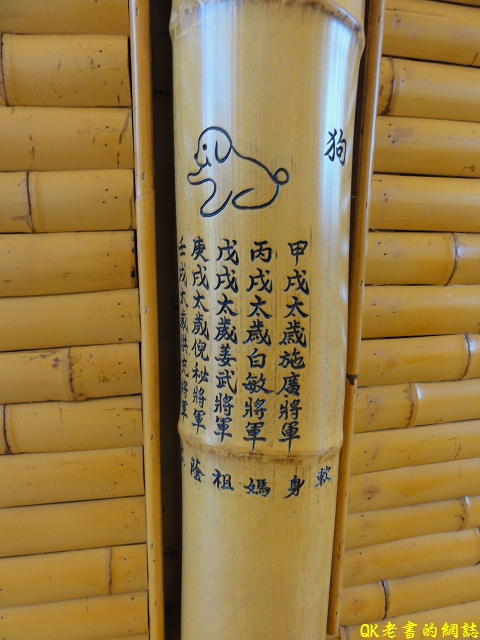 狗
甲戌太歲施廣將軍
丙戌太歲白敏將軍
戊戌太歲姜武將軍
庚戌太歲倪秘將軍
壬戌太歲洪充將軍
軟身媽祖蔭
QK老書的網誌